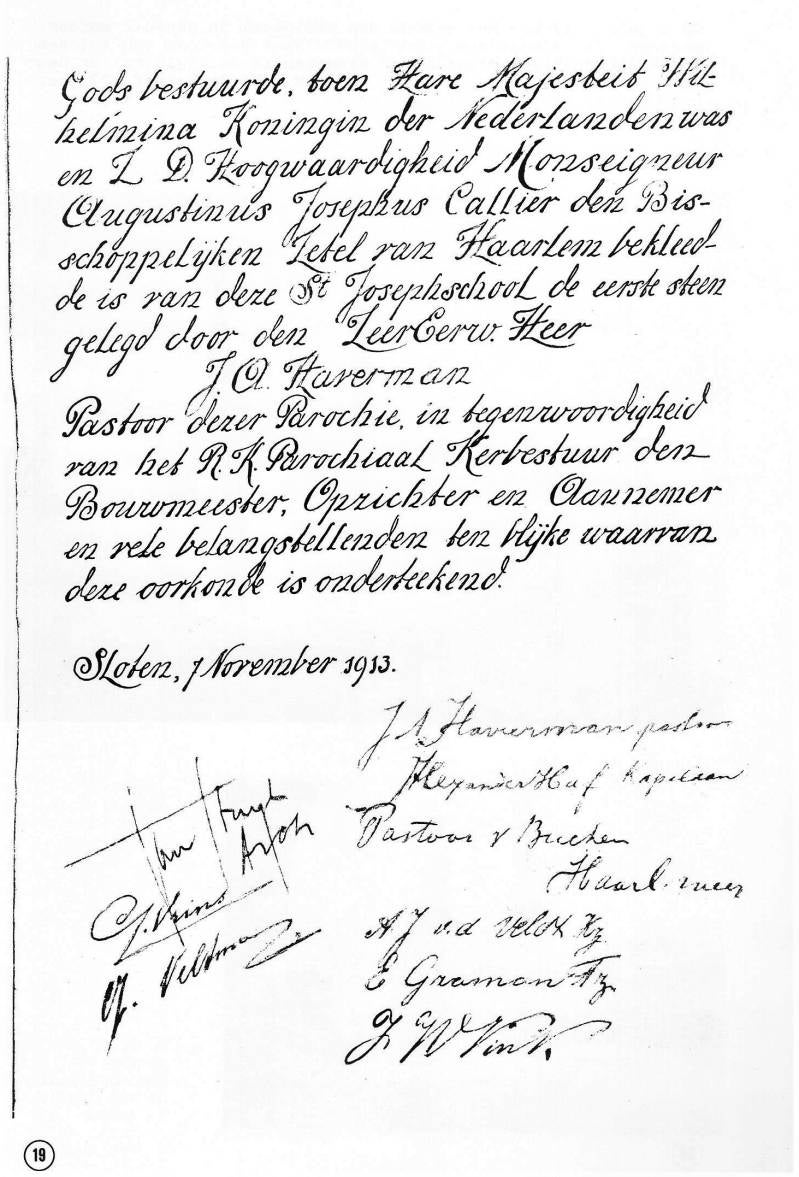 Gods bestuurde, toen Hare Majesteit Wil-
helmina Koningin der Nederlanden was
en Z. D. Hoogwaardigheid Monseigneur
Augustinus Josephus Callier den Bis-
schoppelijken Zetel van Haarlem bekleed-
de is van deze St Josephschool de eerste steen
gelegd door den ZeerEerw. Heer
J. A. Haverman
Pastoor dezer Parochie, in tegenwoordigheid
van het R.K. Parochiaal Kerbestuur den
Bouwmeester, Opzichter en Aannemer
en vele belangstellenden ten blijke waarvan
deze oorkonde is onderteekend.
Sloten, 7 November 1913.
J A Haverman pastoor
Alexander Haf Kapelaan
Pastoor v
Haarl. meer
A J v.d Veldt Hz
E Graman Fz.
J W Vink
Jan
Arch
G. Veldman
19